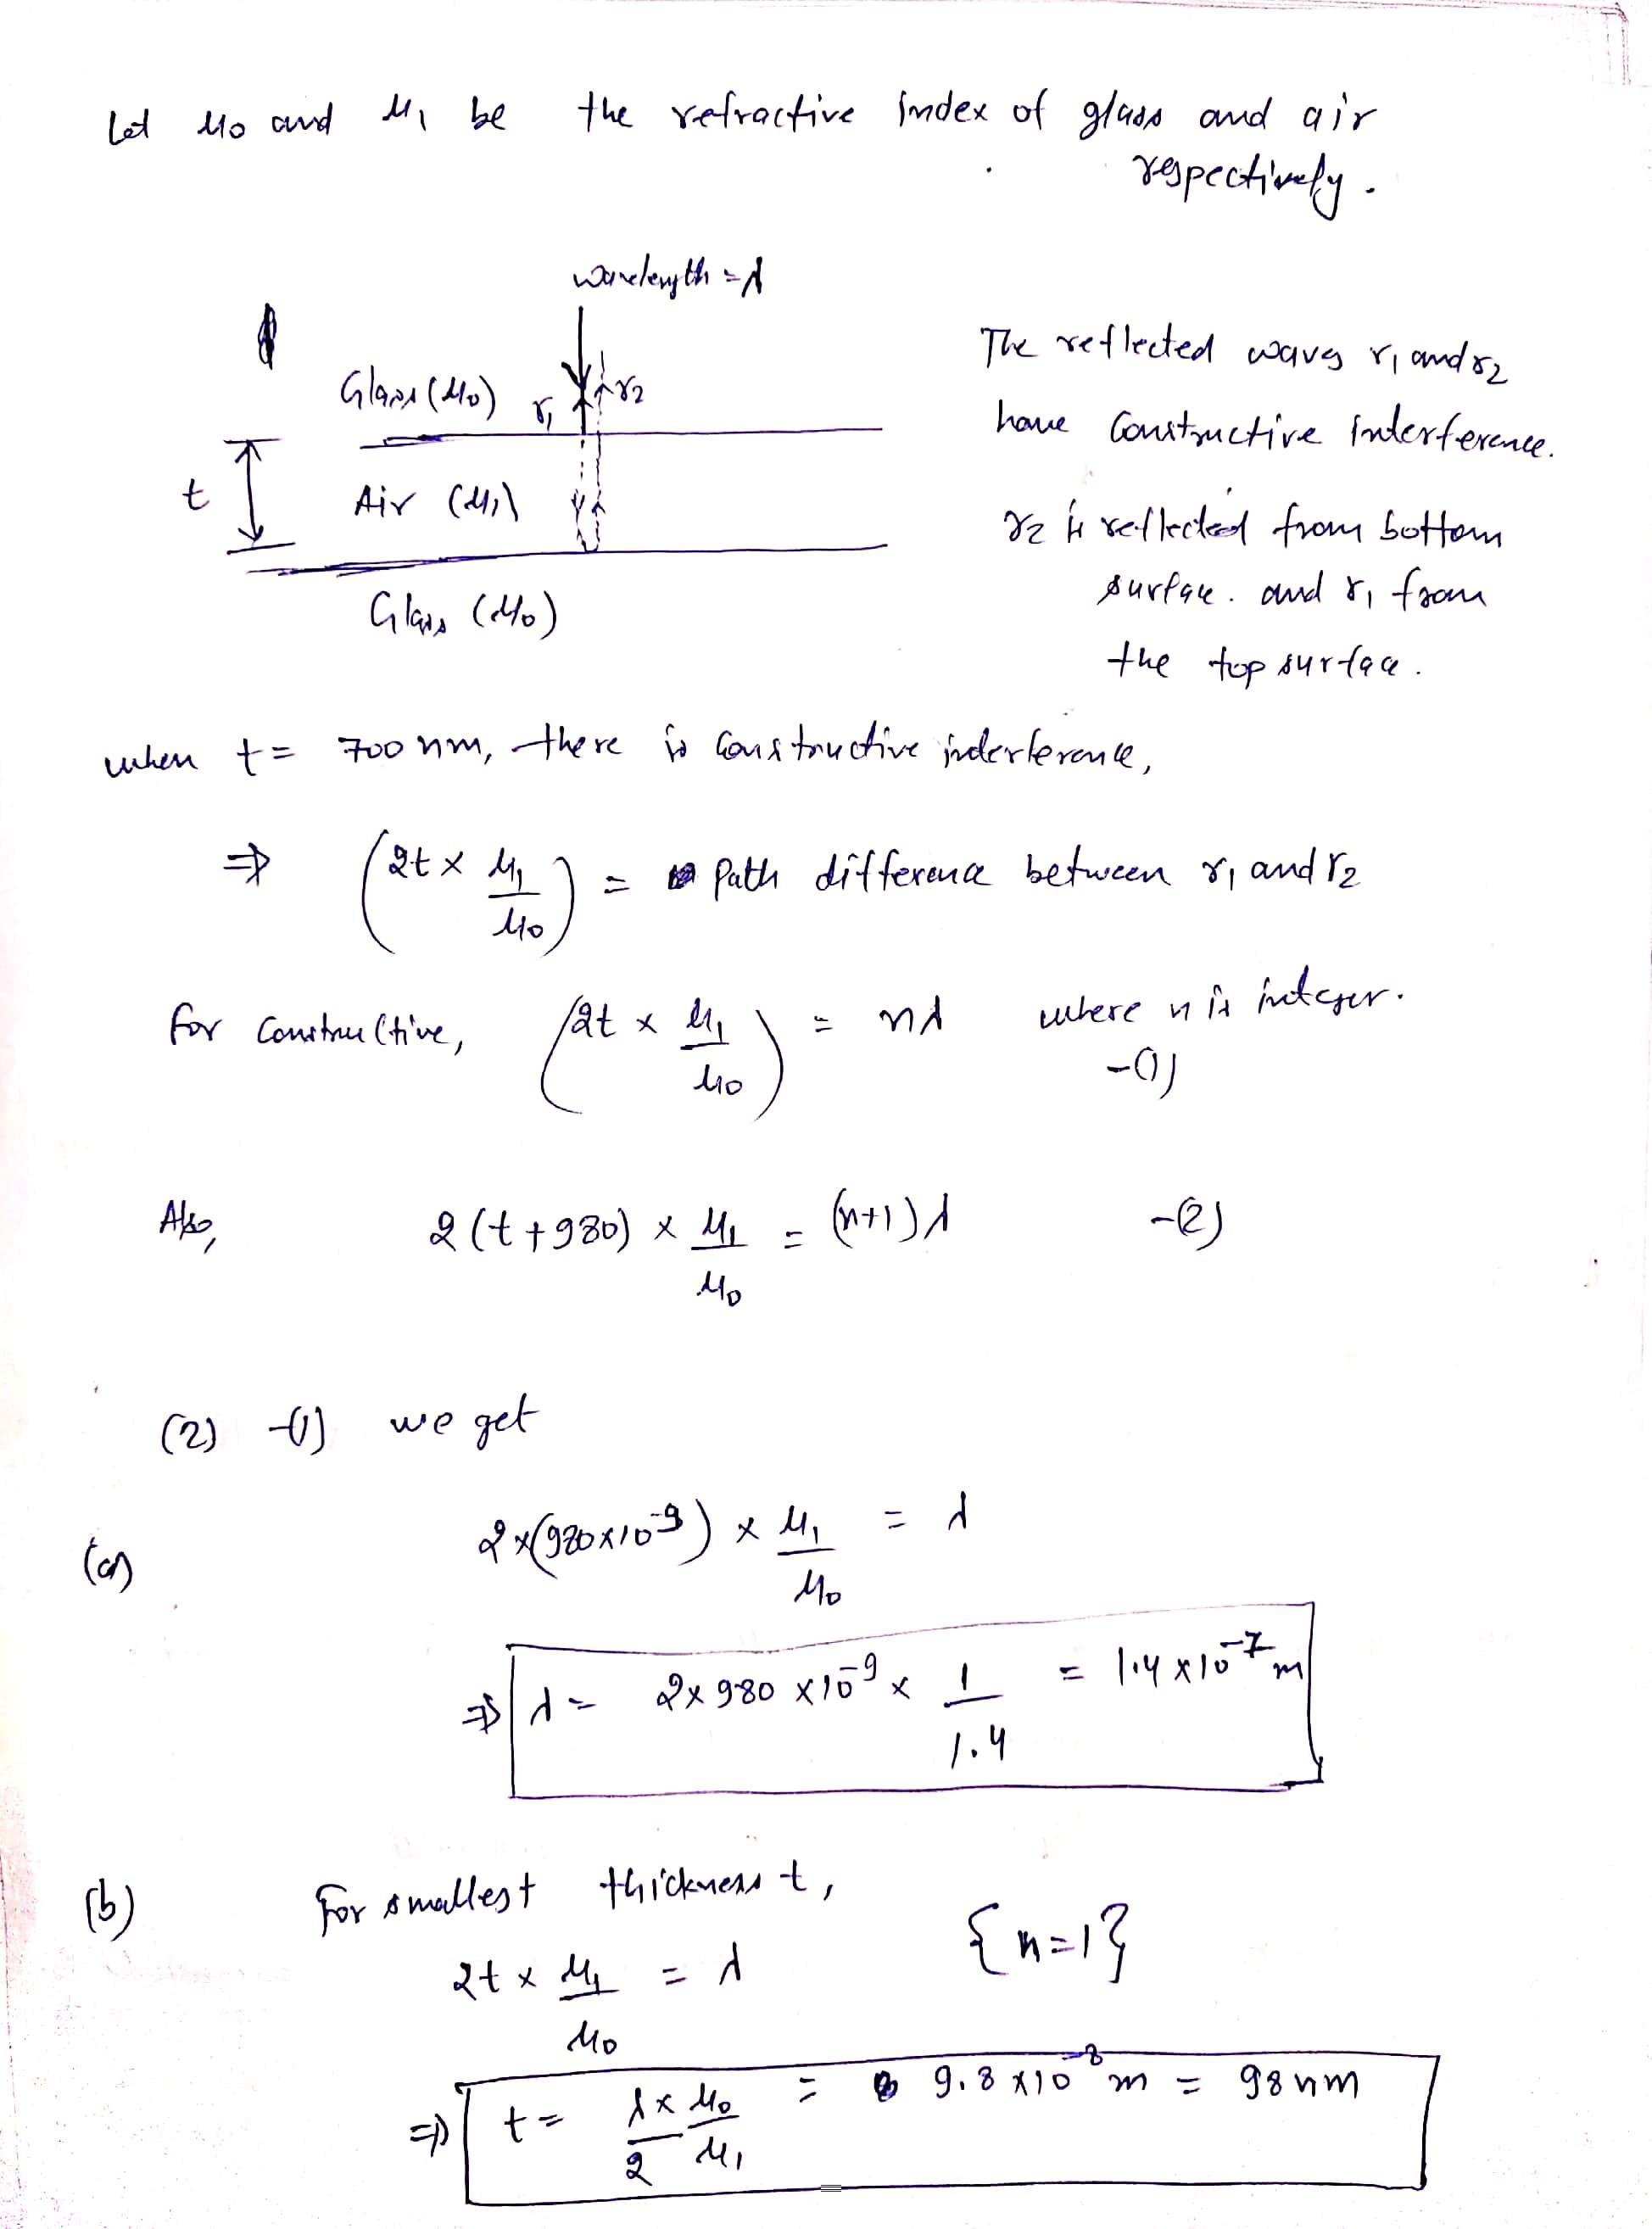 Let μ0 and μ1 be the refractive index of glass and air
respectively.
wavelength = λ
Glass (μ0) r1 r2
t Air (μ1)
Glass (μ0)
The reflected waves r1 and r2
have constructive interference.
r2 is reflected from bottom
surface. and r1 from
the top surface.
when t = 700 nm, there is constructive interference,
⇒ (2t × μ1/μ0) = Path difference between r1 and r2
for constructive, (2t × μ1/μ0) = nλ where n is integer.
-(1)
Also, 2(t + 980) × μ1/μ0 = (n+1)λ -(2)
(2) -(1) we get
(a) 2×(980×10^-9) × μ1/μ0 = λ
⇒ λ = 2×980 ×10^-9 × 1/1.4 = 1.4 ×10^-7 m
(b) For smallest thickness t,
2t × μ1/μ0 = λ {n=1}
⇒ t = λ/2 × μ0/μ1 = 9.8 ×10^-8 m = 98 nm